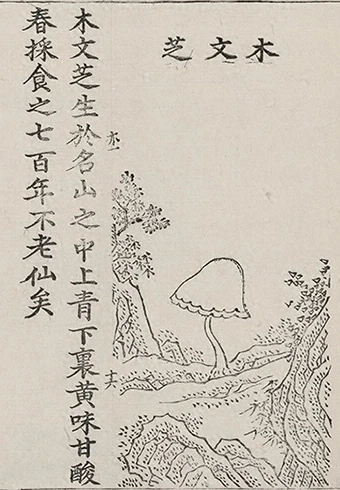 木文芝
木文芝生於名山之中上青下裏黄味甘酸
春採食之七百年不老仙矣